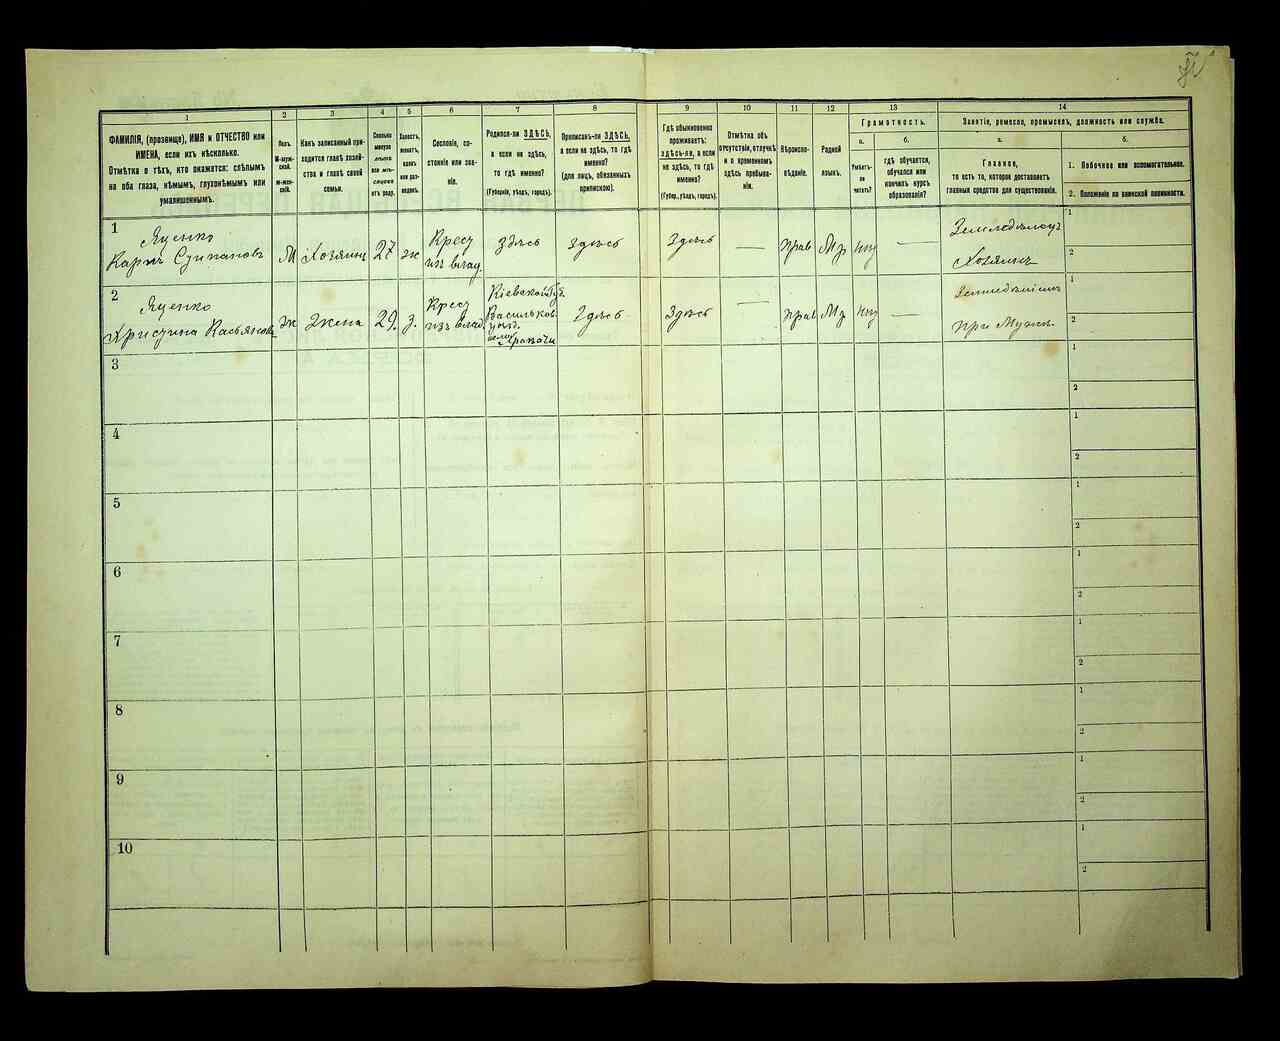 1
2
3
4
5
6
7
8
9
10
11
12
13
14
ФАМИЛІЯ, (прозвище), ИМЯ и ОТЧЕСТВО или
ИМЕНА, если ихъ нѣсколько.
Отмѣтка о тѣхъ, кто окажется: слѣпымъ
на оба глаза, нѣмымъ, глухонѣмымъ или
умалишеннымъ.
Полъ.
М-муж-
ской.
Ж-жен-
скій.
Какъ записанный при-
ходится главѣ хозяй-
ства и главѣ своей
семьи.
Сколько
минуло
лѣтъ
или мѣ-
сяцевъ
отъ роду.
Холостъ,
женатъ,
вдовъ
или раз-
веденъ.
Сословіе, со-
стояніе или зва-
ніе.
Родился-ли ЗДѢСЬ,
а если не здѣсь,
то гдѣ именно?
(Губернія, уѣздъ, городъ).
Приписанъ-ли ЗДѢСЬ,
а если не здѣсь, то гдѣ
именно?
(для лицъ, обязанныхъ
припиской).
Гдѣ обыкновенно
проживаетъ:
здѣсь-ли, а если
не здѣсь, то гдѣ
именно?
(Губер., уѣздъ, городъ).
Отмѣтка объ
отсутствіи, отлучкѣ
и о временномъ
здѣсь пребыва-
ніи.
Вѣроиспо-
вѣданіе.
Родной
языкъ.
Грамотность.
а.
б.
Умѣетъ-
ли
читать?
гдѣ обучается,
обучался или
кончилъ курсъ
образованія?
Занятіе, ремесло, промыселъ, должность или служба.
а.
б.
Главное,
то есть то, которое доставляетъ
главныя средства для существованія.
1. Побочное или вспомогательное.
2. Положеніе по воинской повинности.
1
Яценко
Карпъ Степановъ
М
Хозяинъ
27
ж
Крест
изъ влад.
Здѣсь
Здѣсь
Здѣсь
—
Прав
Мр
нѣт
—
Земледѣлецъ
Хозяинъ
1
2
2
Яценко
Христина Касьянова
Ж
Жена
29.
з.
Крест
изъ влад.
Кіевской губ.
Васильков.
уѣзд.
село
Здѣсь
Здѣсь
—
Прав
Мр
нѣт
—
при Мужѣ
1
2
3
1
2
4
1
2
5
1
2
6
1
2
7
1
2
8
1
2
9
1
2
10
1
2